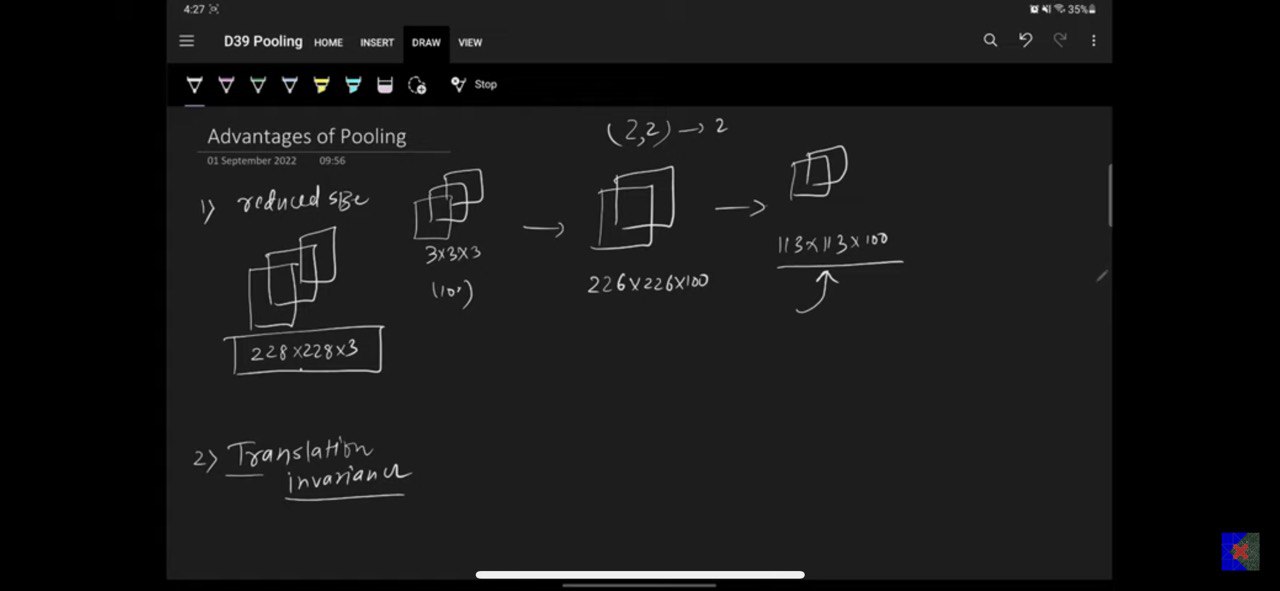 4:27 35%
D39 Pooling HOME INSERT DRAW VIEW
Stop
Advantages of Pooling
01 September 2022 09:56
(2,2) → 2
1) reduced size
3x3x3
(100)
226x226x100
113x113x100
228x228x3
2) Translation
invariance